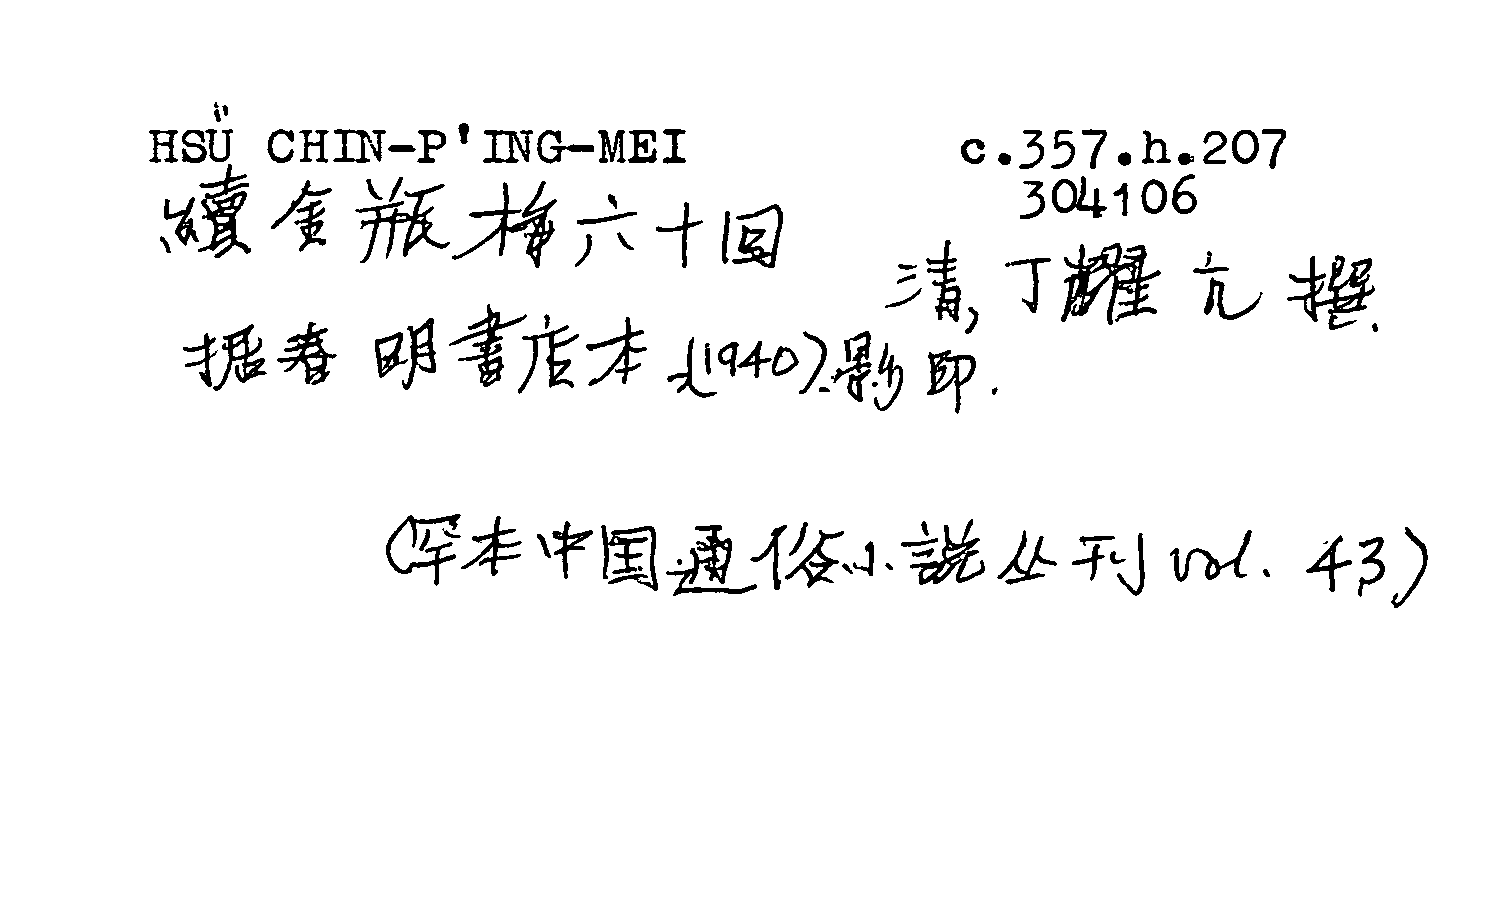 HSÜ CHIN-P'ING-MEI c.357.h.207
304106
續金瓶梅六十回
清, 丁耀亢 撰.
据春明書店本 (1940) 影印.
(罕本中国通俗小説丛刊 vol. 43)